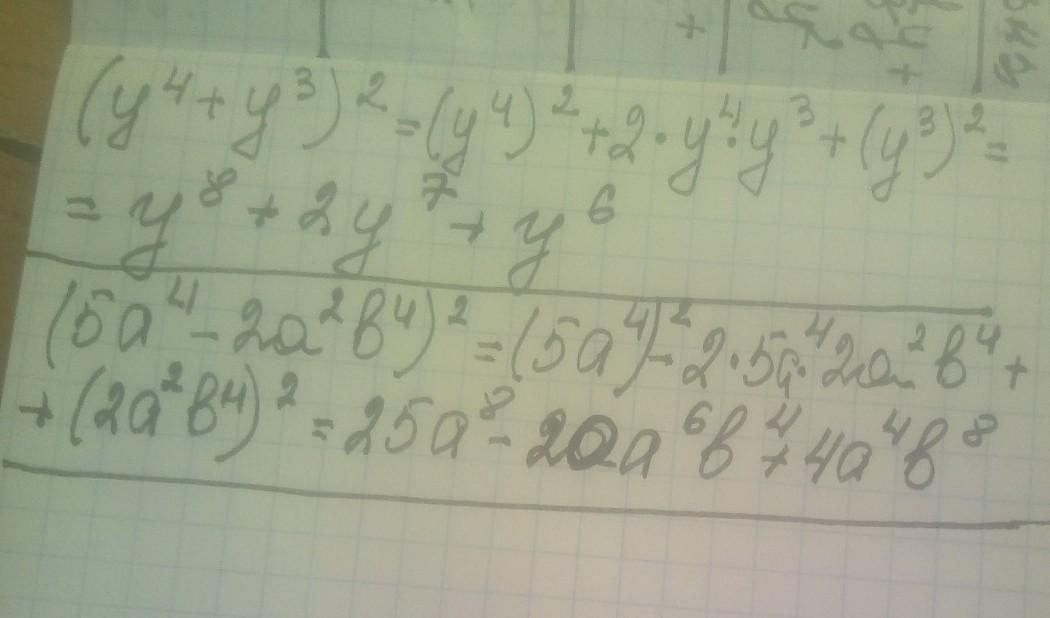 (y⁴+y³)²=(y⁴)²+2·y⁴·y³+(y³)²=
=y⁸+2y⁷+y⁶
(5a⁴-2a²b⁴)²=(5a⁴)²-2·5a⁴·2a²b⁴+
+(2a²b⁴)²=25a⁸-20a⁶b⁴+4a⁴b⁸